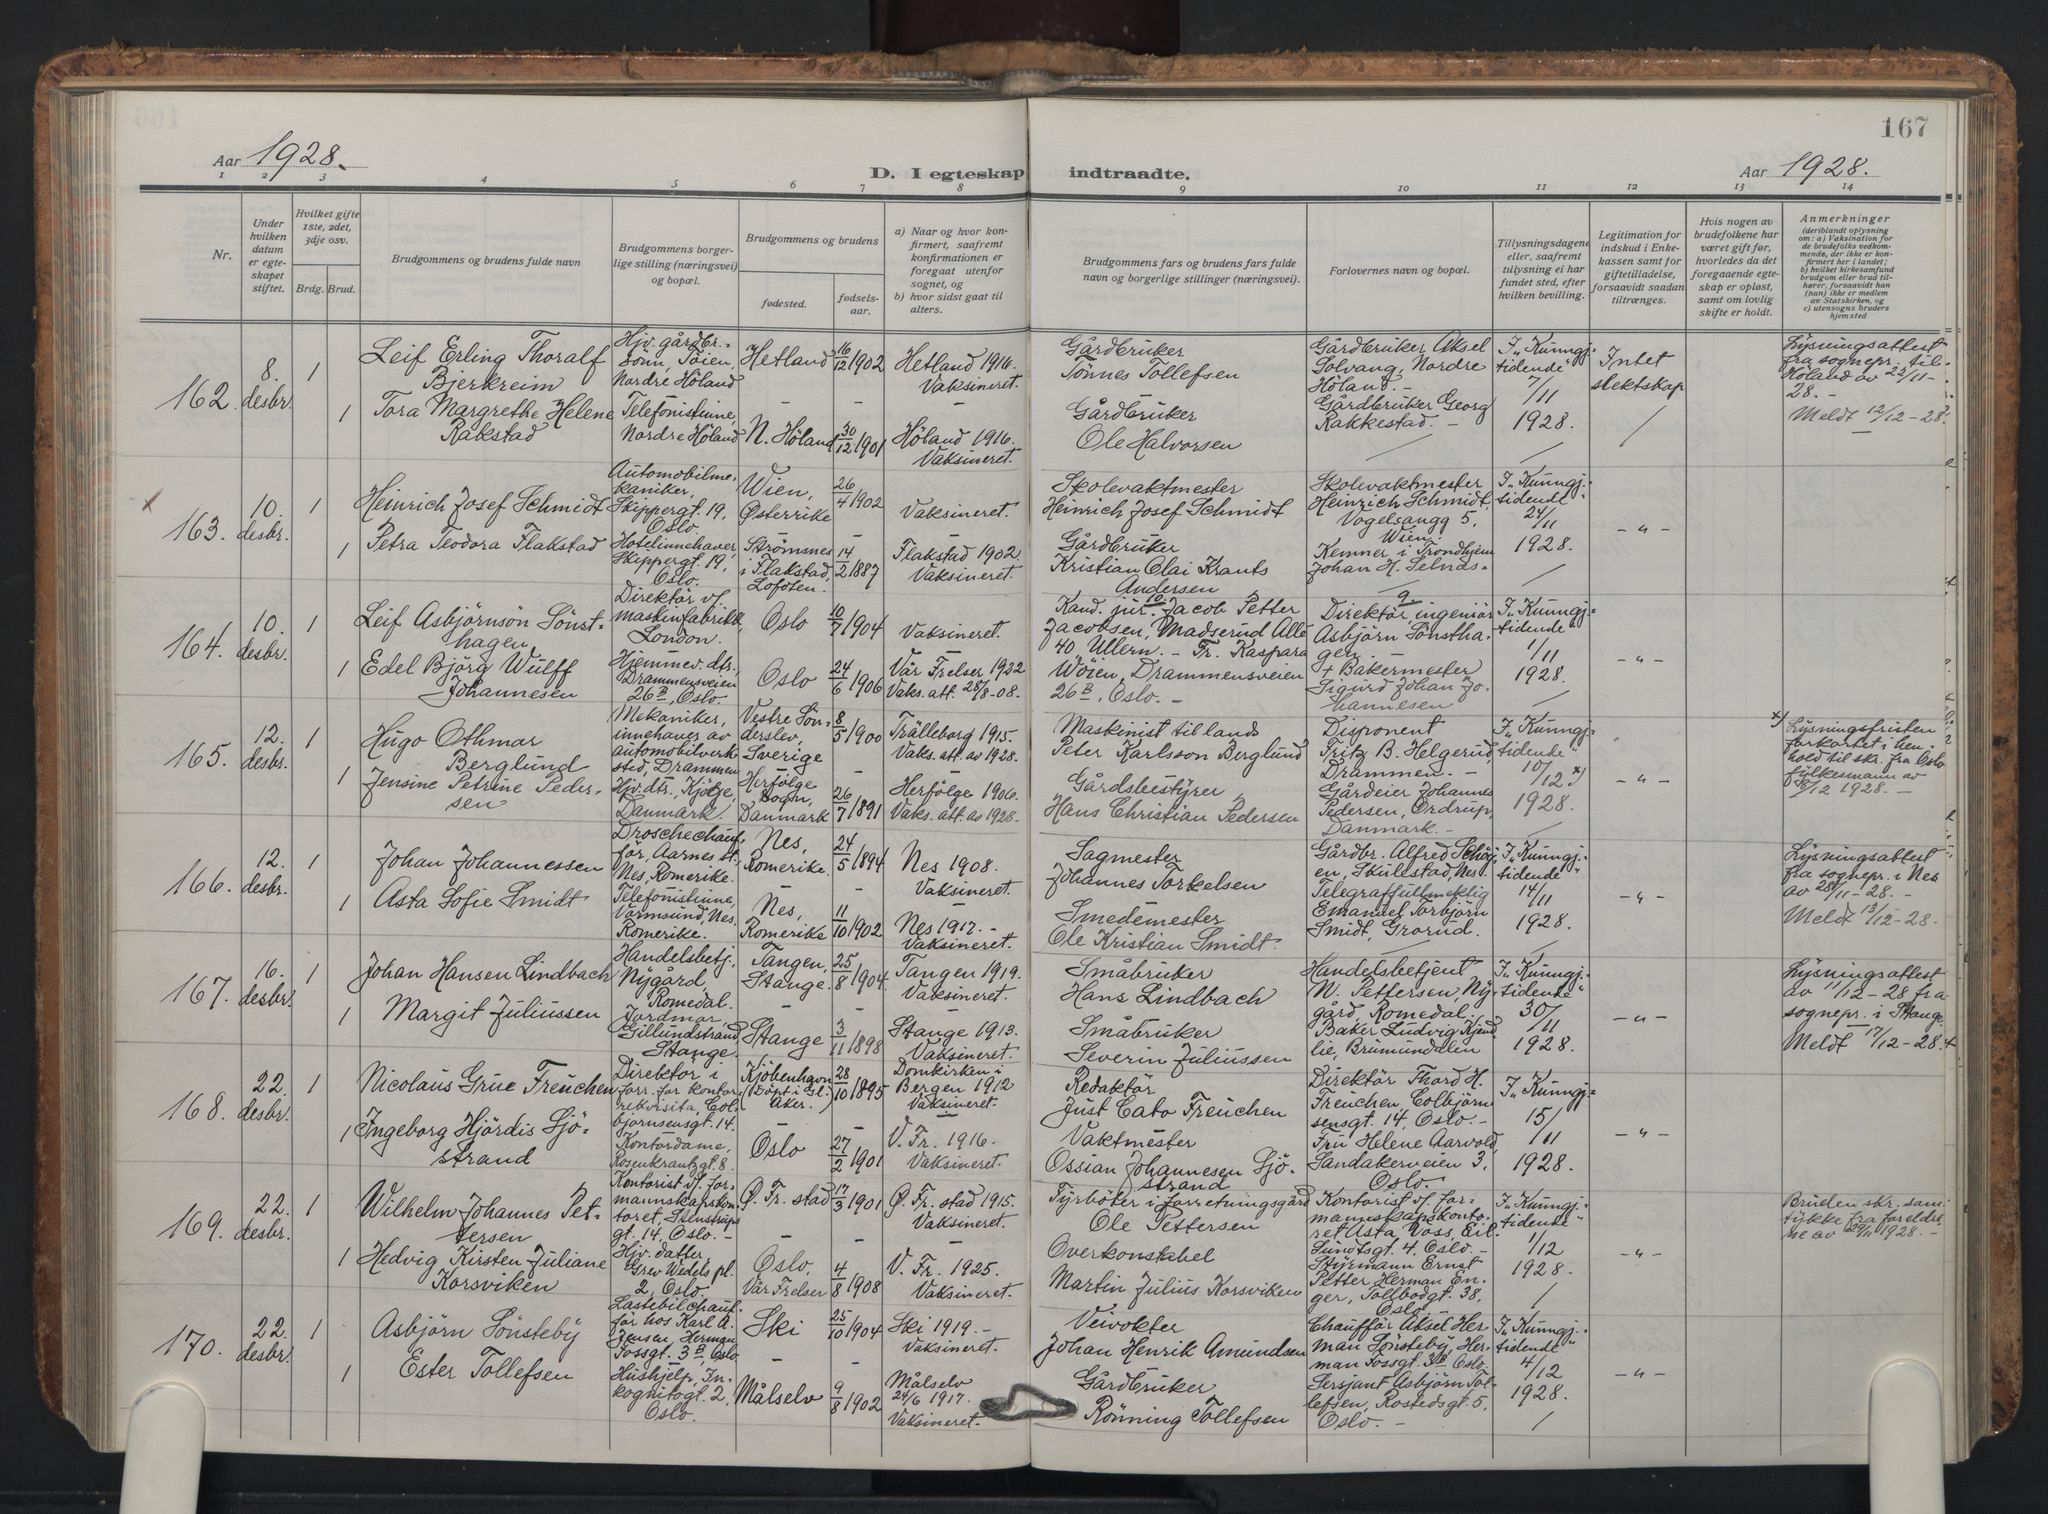 167
Aar 1928.
D. I egteskap indtraadte.
Aar 1928.
1 2 3 4 5 6 7 8 9 10 11 12 13 14
Nr.
Under hvilken datum er egteskapet stiftet.
Hvilket gifte 1ste, 2det, 3dje osv.
Brdg. Brud.
Brudgommens og brudens fulde navn
Brudgommens borgerlige stilling (næringsvei) og bopæl.
Brudgommens og brudens
fødested.
fødselsaar.
a) Naar og hvor konfirmert, saafremt konfirmationen er foregaat utenfor sognet, og
b) hvor sidst gaat til alters.
Brudgommens fars og brudens fars fulde navn og borgerlige stillinger (næringsvei).
Forlovernes navn og bopæl.
Tillysningsdagene eller, saafremt tilysning ei har fundet sted, efter hvilken bevilling.
Legitimation for indskud i Enkekassen samt for giftetilladelse, forsaavidt saadan tiltrænges.
Hvis nogen av brudefolkene har været gift før, hvorledes da det foregaaende egteskap er opløst, samt om lovlig skifte er holdt.
Anmerkninger
(deriblandt oplysning om: a) Vaksination for de brudefolks vedkommende, der ikke er konfirmert her i landet;
b) hvilket kirkesamfund brudgom eller brud tilhører, forsaavidt han (hun) ikke er medlem av Statskirken, og
c) utensogns bruders hjemsted
162. 8. desbr. 1
Leif Erling Thoralf Bjerkreim
Hjv. gårdbr.-sönn, Töien, Nordre Höland
Hetland 16/12 1902
Hetland 1916. Vaksineret.
Gårdbruker
Tönnes Tollefsen
Gårdbruker Aksel Solvang, Nordre Höland. -
Gårdbruker Georg Rakkestad. -
I „Kunngj.-tidende" 7/11 1928.
Intet slektskap
Lysningsattest fra sognepr. til Höland av 23/11-28. -
Meldt 12/12-28.
1 Tora Margrethe Helene Rakstad
Telefonistinne, Nordre Höland
N. Höland 30/12 1901
Höland 1916. Vaksineret.
Gårdbruker
Ole Halvorsen
163. 10. desbr. 1
Heinrich Josef Schmidt
Automobilmekaniker, Skippergt. 19, Oslo.
Wien, Österrike 26/4 1902
Vaksineret.
Skolevaktmester
Heinrich Josef Schmidt
Skolevaktmester Heinrich Schmidt, Vogelsangg 5, Wien.
Kemner i Trondhjem Johan H. Selnäs. -
I „Kunngj.-tidende" 24/11 1928.
- " -
1 Petra Teodora Flakstad
Hotelinnehaver, Skippergt. 19, Oslo.
Strömsnes i Flakstad, Lofoten. 14/2 1887
Flakstad 1902. Vaksineret.
Gårdbruker
Kristian Olai Krants Andersen
164. 10. desbr. 1
Leif Asbjörnsön Sönsthagen
Direktör v/ maskinfabrikk, London.
Oslo 10/7 1904
Vaksineret.
Kand. jur. Jacob Petter Jacobsen, Madserud Allé 40, Ullern. - Fr. Kaspara Wöien, Drammensveien 26 B, Oslo. -
Direktör, ingeniör Asbjörn Sönsthagen. -
+ Bakermester Sigurd Johan Johannesen
I „Kunngj.-tidende" 1/11 1928.
- " -
1 Edel Björg Wulff Johannesen
Hjemmev. dtr., Drammensveien 26 B, Oslo.
Oslo 24/6 1906
Vår Frelser 1922 Vaks. att. 28/8-08.
165. 12. desbr. 1
Hugo Othmar Berglund
Mekaniker, innehaver av automobilverksted, Drammen
Vestre Sönderslev, Sverige 8/5 1900
Trälleborg 1915. Vaks. att. av 1928.
Maskinist tillands
Peter Karlsson Berglund
Disponent Fritz B. Helgerud, Drammen. -
Gårdeier Johannes Pedersen, Ordrup, Danmark. -
I „Kunngj.-tidende" 10/12 x) 1928.
- " -
x) Lysningsfristen forkortet i henhold til skr. fra Oslo fylkesmann av /12 1928. -
1 Jensine Petrine Pedersen
Hjv. dtr., Kjöge, Danmark.
Herfölge Sogn, Danmark 26/7 1891
Herfölge 1906. Vaks. att. av 1928.
Gårdsbestyrer
Hans Christian Pedersen
166. 12. desbr. 1
Johan Johannessen
Droschechauför, Aarnes st., Nes, Romerike.
Nes, Romerike 24/5 1894
Nes 1908. Vaksineret.
Sagmester
Johannes Torkelsen
Gårdbr. Alfred Schöyen, Skulestad, Nes.
Telegraffullmektig Emanuel Torbjörn Smidt, Grorud. -
I „Kunngj.-tidende" 14/11 1928.
- " -
Lysningsattest fra sognepr. i Nes av 28/11-28. -
Meldt 13/12-28.
1 Asta Sofie Smidt
Telefonistinne, Vormsund, Nes, Romerike.
Nes, Romerike 11/10 1902
Nes 1917. - Vaksineret.
Smedemester
Ole Kristian Smidt.
167. 16. desbr. 1
Johan Hansen Lindbach
Handelsbetj., Nygård, Romedal.
Tangen, Stange. 25/8 1904
Tangen 1919. Vaksineret.
Småbruker
Hans Lindbach
Handelsbetjent N. Pettersen, Nygård, Romedal. -
Baker Ludvig Kjendlie, Brumundalen
I „Kunngj.-tidende" 30/11 1928.
- " -
Lysningsattest av 11/12-28 fra sognepr. i Stange.
Meldt 17/12-28.
1 Margit Juliussen
Jordmor, Gillundstrand, Stange.
Stange 3/11 1898
Stange 1913. Vaksineret.
Småbruker
Severin Juliussen
168. 22. desbr. 1
Nicolaus Grue Freuchen
Direktor i forr. for kontorrekvisita, Colbjörnsensgt. 14.
Kjöbenhavn (Döpt i Gl. Aker.) 28/10 1895
Domkirken i Bergen 1912 Vaksineret.
Redaktör
Just Cato Freuchen
Direktör Thord H. Freuchen, Colbjörnsensgt. 14, Oslo. -
Fru Helene Aarvold, Sandakerveien 3, Oslo.
I „Kunngj.- 15/11 1928.
- " -
1 Ingeborg Hjördis Sjöstrand
Kontordame, Rosenkrantzgt. 8.
Oslo 27/2 1901
V. Fr. 1916. Vaksineret.
Vaktmester
Ossian Johannesen Sjöstrand
169. 22. desbr. 1
Wilhelm Johannes Pettersen
Kontorist v/ formannskapskontoret, Stenstrupsgt. 14, Oslo. -
Ø. Fr. stad 17/3 1901
Ø. Fr. stad 1915. Vaksineret.
Fyrböter i forretningsgård
Ole Pettersen
Kontorist v/ formannskapskontoret Asta Voss, Eil. Sundtsgt. 4, Oslo. -
Styrmann Ernst Petter Herman Enger, Tollbodgt. 38, Oslo.
I „Kunngj.-tidende" 1/12 1928.
- " -
Bruden skr. samtykke fra foreldrene av 29/11 1928. -
1 Hedvig Kirsten Juliane Korsviken
Hjv. datter, Grev Wedels pl. 2, Oslo.
Oslo, Vår Frelser 4/8 1908
V. Fr. 1925. Vaksineret.
Overkonstabel
Martin Julius Korsviken
170. 22. desbr. 1
Asbjörn Sönsteby
Lastebilchauför hos Karl A. Jensen, Herman Fossgt. 3 B, Oslo
Ski 25/10 1904
Ski 1919. - Vaksineret.
Veivokter
Johan Henrik Amundsen
Chaufför Aksel Herman Sönsteby, Herman Fossgt. 3 B, Oslo.
Sersjant Asbjörn Tollefsen, Rostedsgt. 5, Oslo. -
I „Kunngj.-tidende" 4/12 1928.
- " -
1 Ester Tollefsen
Hushjelp, Inkognitogt. 2, Oslo.
Målselv 9/8 1902
Målselv 24/6 1917. Vaksineret.
Gårdbruker
Rönning Tollefsen